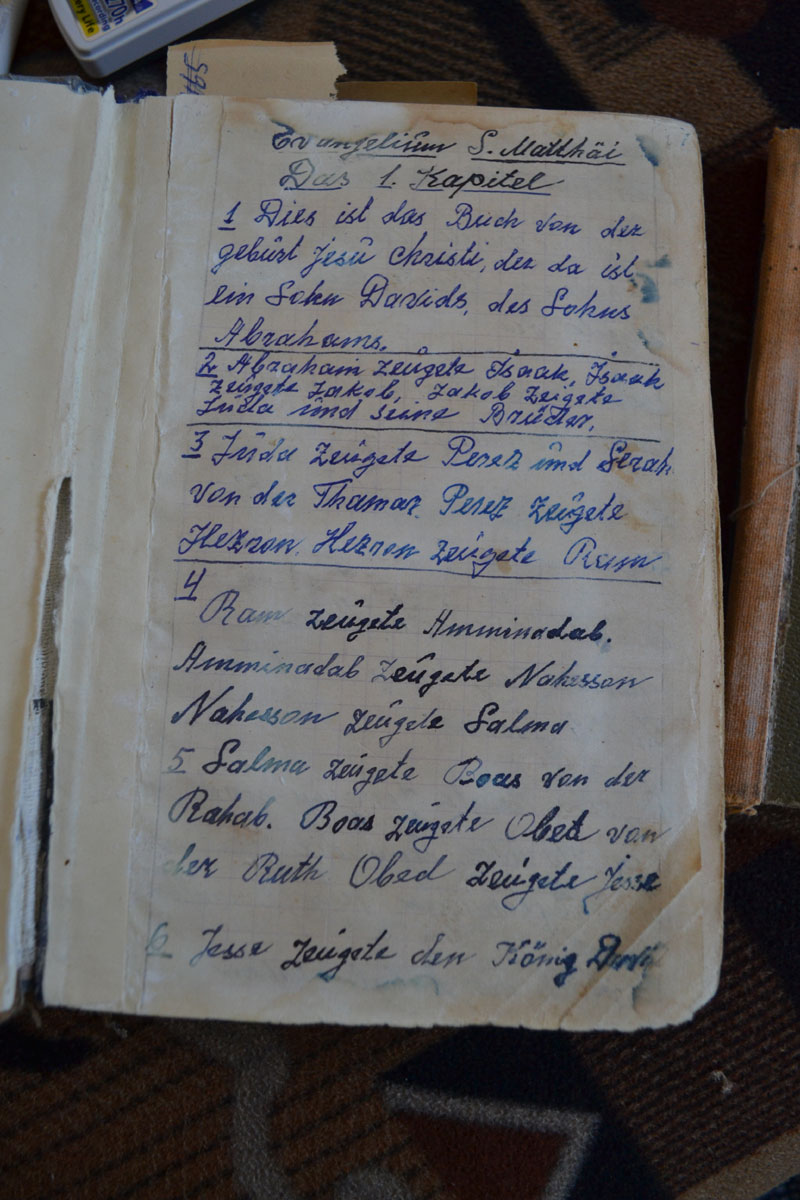 465
Evangelium S. Matthäi
Das 1. Kapitel
1 Dies ist das Buch von der
gebürt Jesü Christi, der da ist
ein Sohn Davids, des Sohns
Abrahams.
2 Abraham zeügete Isaak, Isaak
zeügete Jakob, Jakob zeigete
Jüda ünd seine Brüder.
3 Jüda zeügete Perez ünd Serah
von der Thamar. Perez zeügete
Hezron. Hezron zeügete Ram
4
Ram zeügete Amminadab.
Amminadab zeügete Nahesson
Nahesson zeügete Salma
5 Salma zeügete Boas von der
Rahab. Boas zeügete Obed von
der Ruth Obed zeügete Jesse
6 Jesse zeügete den König David